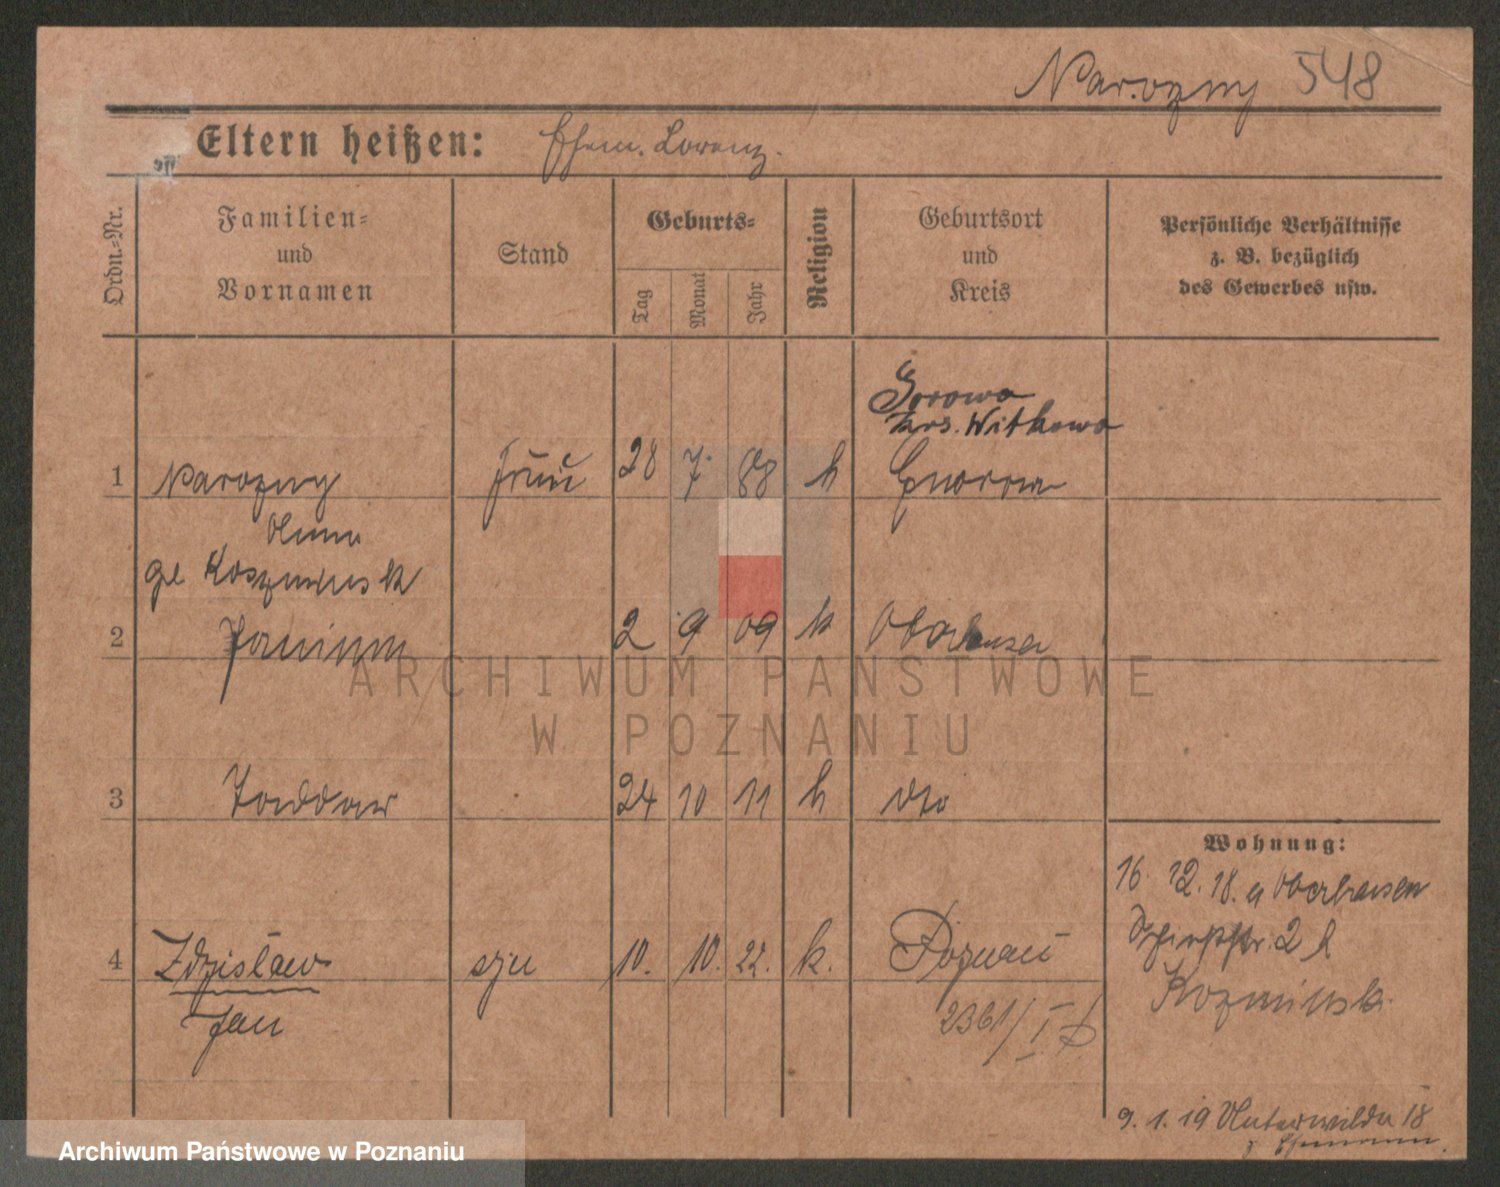 Narozny 548
Eltern heißen: Ehem. Lorenz.
Ordn.-Nr.
Familien-
und
Vornamen
Stand
Geburts-
Tag
Monat
Jahr
Religion
Geburtsort
und
Kreis
Persönliche Verhältnisse
z. B. bezüglich
des Gewerbes usw.
Gorowo
Krs. Witkowo
1 Narozny Frau 28 7. 88 k
Anna
2 Janina 2 9 09 k Oberhausen
ARCHIWUM PAŃSTWOWE
W POZNANIU
3 Taddaus 24 10 11 k dto
Wohnung:
16. 12. 18. a Oberhausen
2
4 Zdzisław syn 10. 10. 22. k. Poznań
Jan
2361/I
9. 1. 19 Unterwilda 18
z Ehemann.
Archiwum Państwowe w Poznaniu